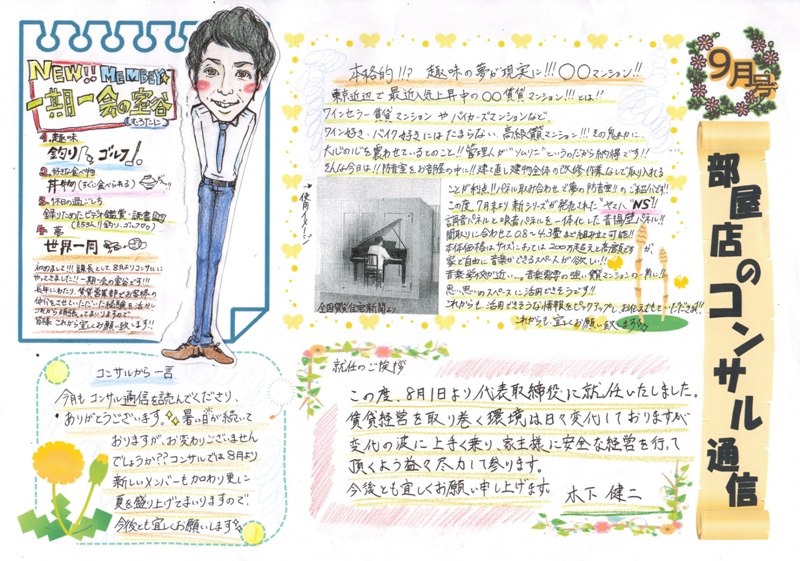 9月号
部屋店のコンサル通信
NEW!! MEMBER☆
一期一会の室谷
(むろたに)
1.趣味
釣り ゴルフ
2.好きな食べ物
丼物(すぐに食べられる)
3.休日の過ごし方
録りためたビデオ鑑賞・読書
4.夢
世界一周
初めまして!!! 課長として、8月よりコンサルに
やってきました!!一期一会の室谷です!!
長年にわたり、賃貸営業部でお客様の
仲介をさせていただいた経験を活かし
これから頑張ってまいりますので、
皆様 これから宜しくお願い致します!!
本格的!!? 趣味の夢が現実に!!! 〇〇マンション!!
東京近辺で最近人気上昇中の〇〇賃貸マンション!!!とは!?
ワインセラー賃貸マンション や バイカーズマンションなど、
ワイン好き・バイク好きにはたまらない、高級賃貸マンション!!!
管理人が"ソムリエ"というのだから納得です!!
この度、7月末より新シリーズが発売された"ヤマハ"NS"!!
調音パネルと吸音パネルを一体化した音場パネル!!
間取りに合わせて0.8~4.3畳まで組み立て可能!!
家で自由に音楽ができるスペースが欲しい!!
思い思いのスペースに活用できそうです!!
これからも、活用できそうな情報をピックアップし、お伝えさせていただきます!!
これからも、宜しくお願い致します
→使用イメージ
全国賃貸住宅新聞より
コンサルから一言
今月もコンサル通信を読んでくださり、
ありがとうございます。暑い日が続いて
おりますが、お変わりございません
でしょうか??コンサルでは8月より
新しいメンバーも加わり更に
夏を盛り上げてまいりますので、
今後とも宜しくお願いします
就任のご挨拶
この度、8月1日より代表取締役に就任いたしました。
賃貸経営を取り巻く環境は日々変化しておりますが
変化の波に上手く乗り、家主様に安全な経営を行って
頂くよう益々尽力して参ります。
今後とも宜しくお願い申し上げます。
木下 健二